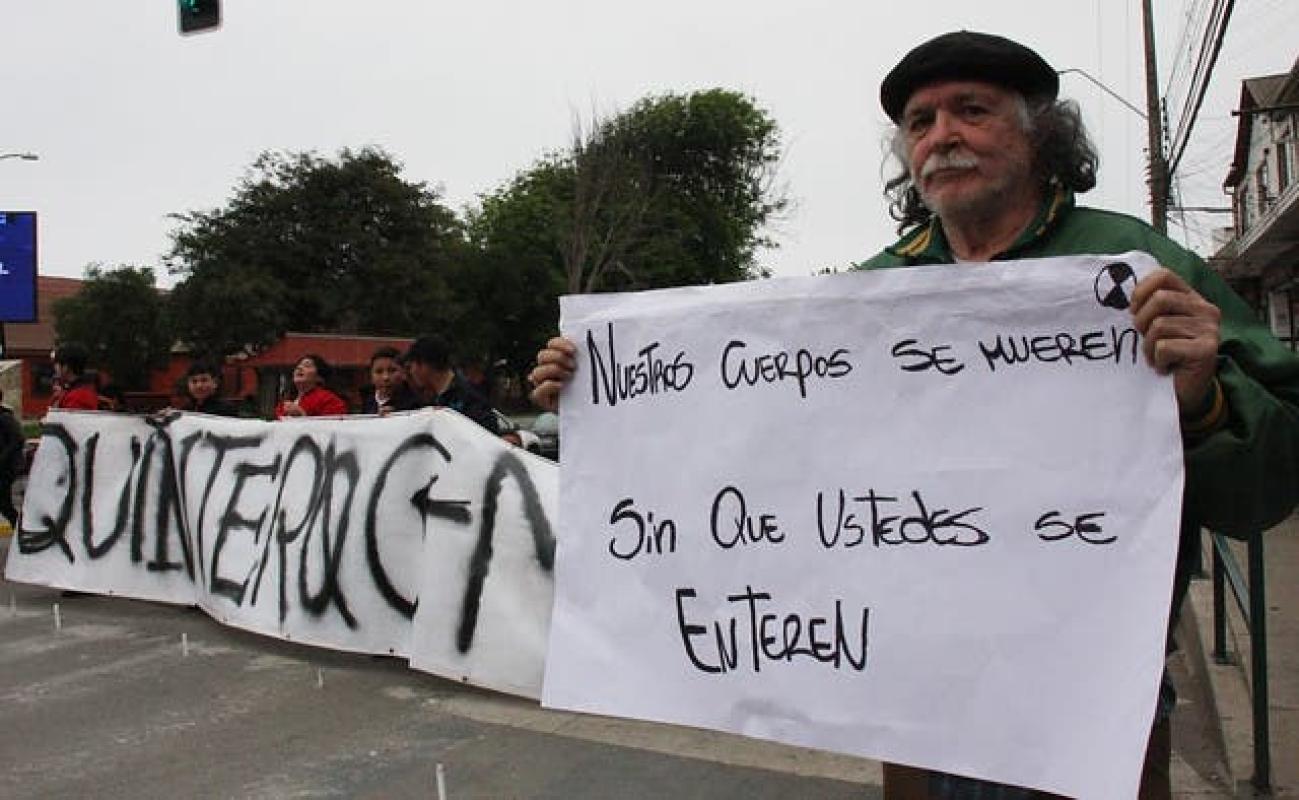 Nuestros Cuerpos se mueren
Sin Que Ustedes se
Enteren
QUINTERO